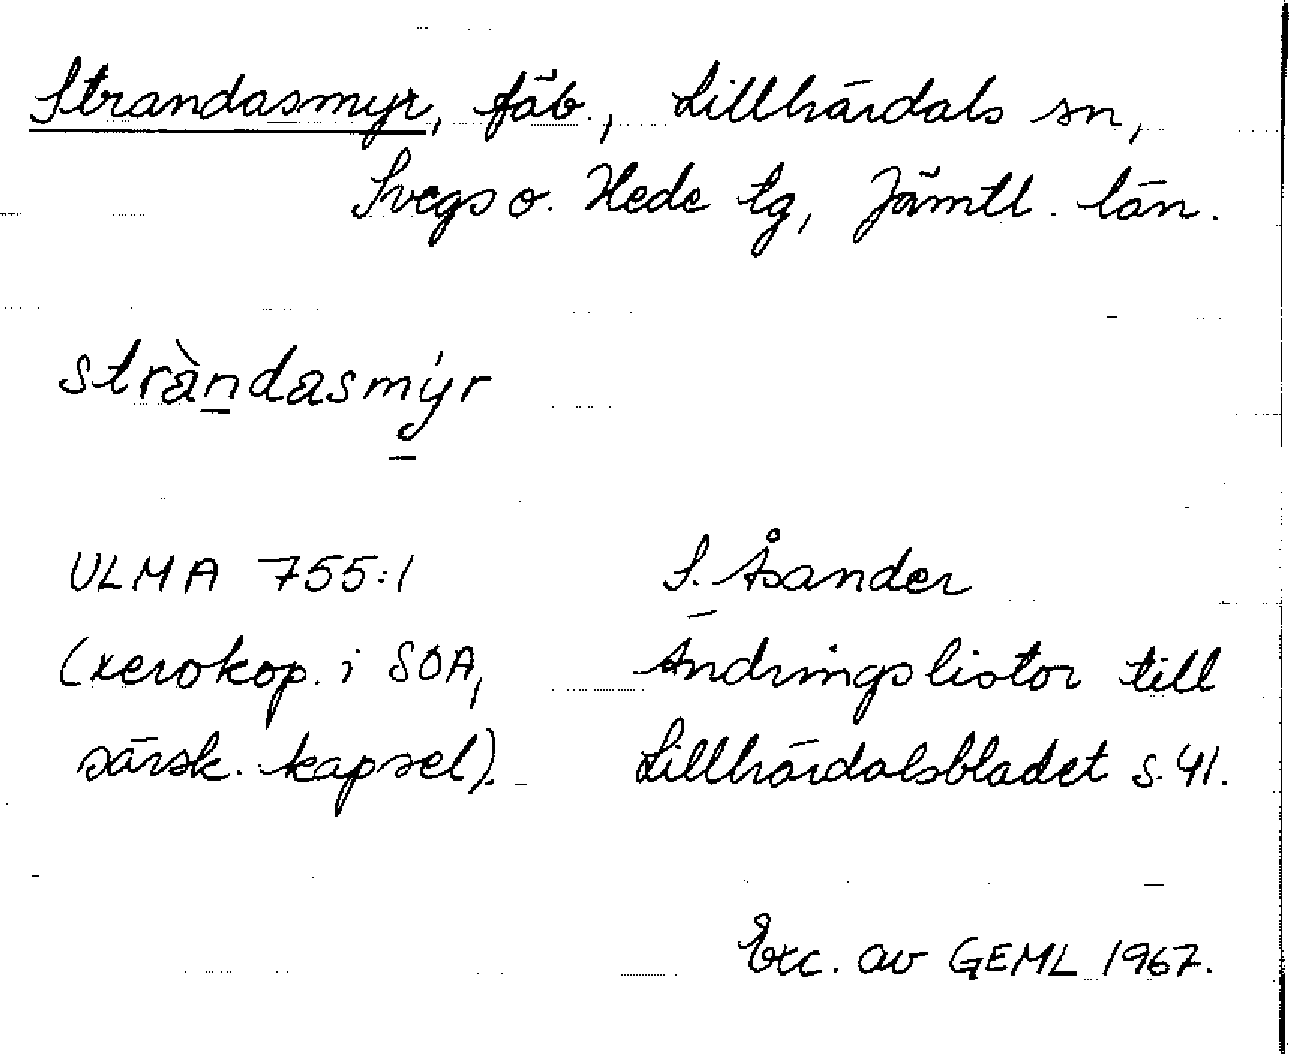 Strandasmyr, fäb., Lillhärdals sn,
Svegs o. Hede tg, Jämtl. län.
stràndasmýr
ULMA 755:1
(xerokop. i SOA,
särsk. kapsel).
S. Åsander
Ändringslistor till
Lillhärdalsbladet s. 41.
Exc. av GEML 1967.